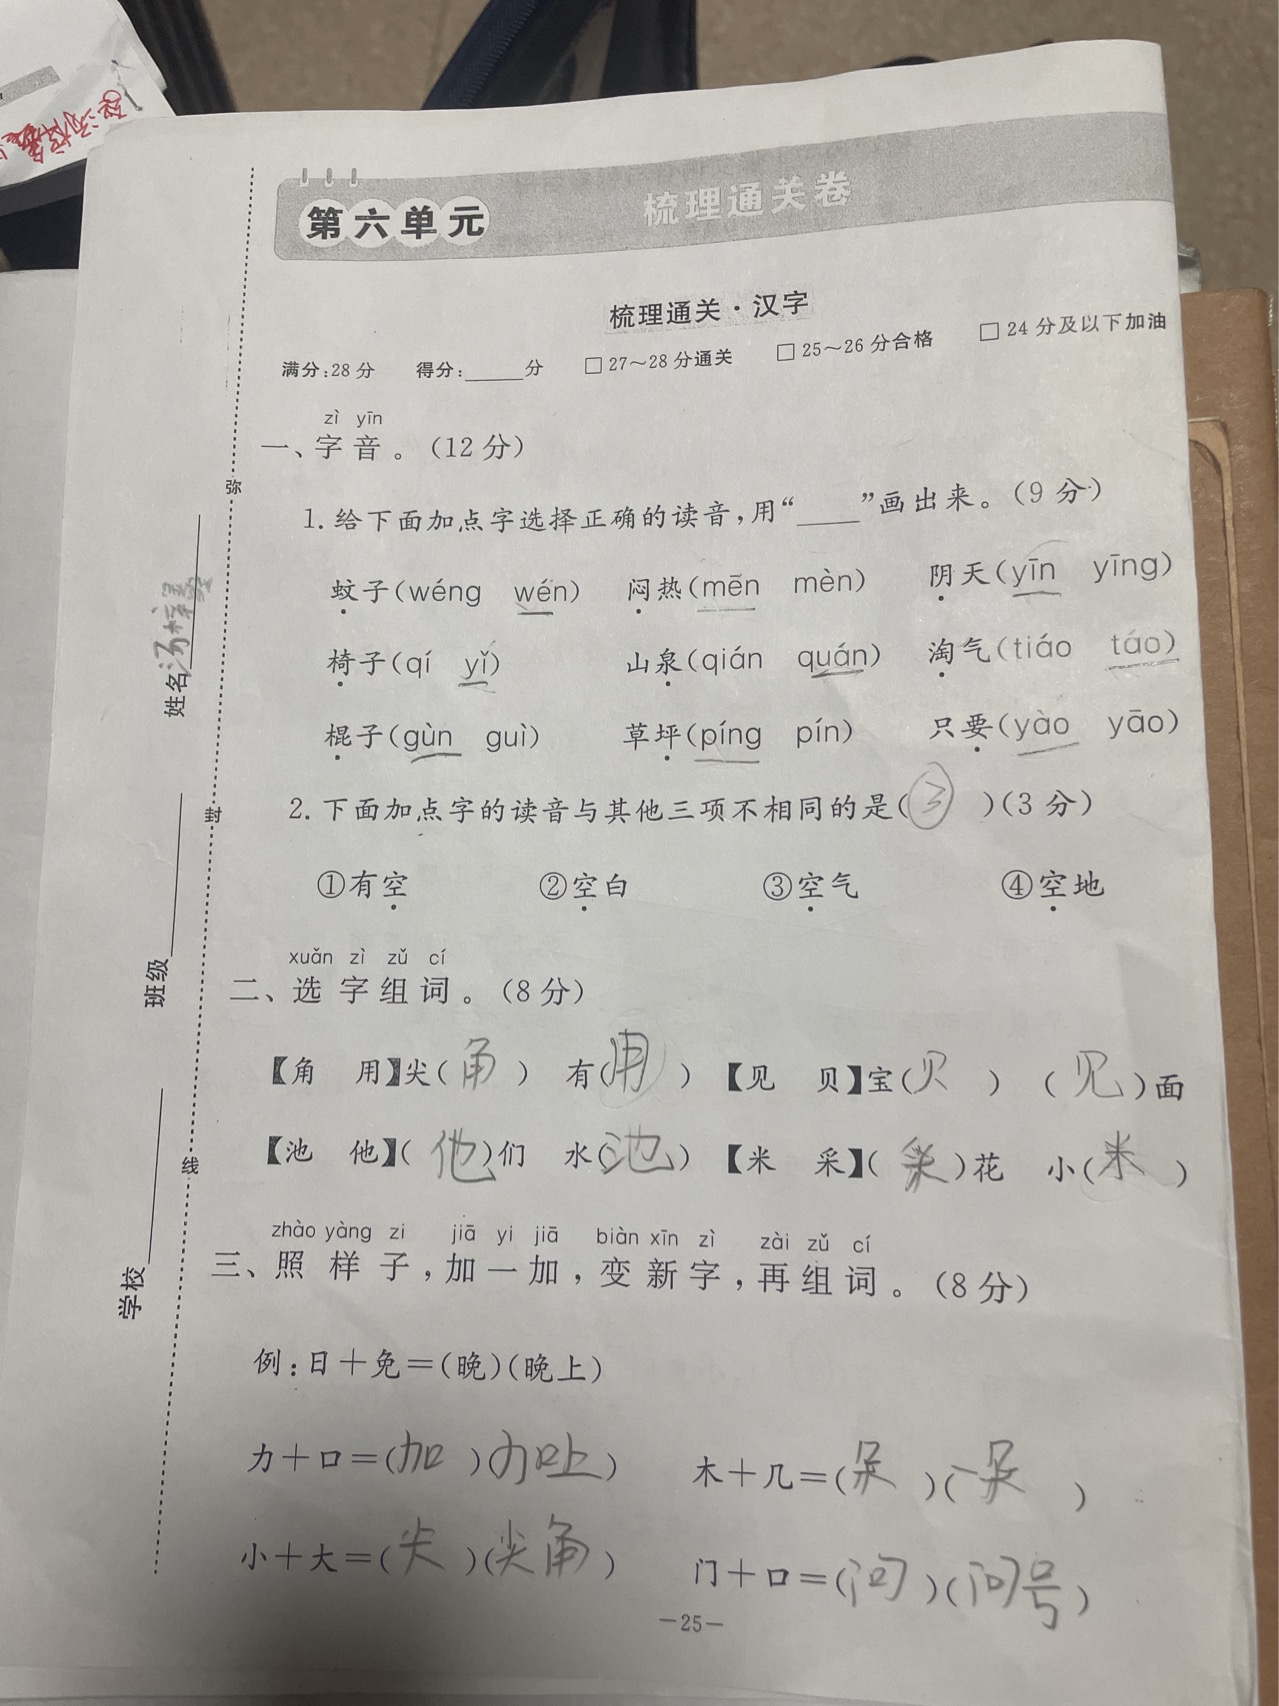 第六单元
梳理通关卷
梳理通关·汉字
满分:28分 得分:_____分 □27～28分通关 □25～26分合格 □24分及以下加油
zì yīn
一、字音。(12分)
1.给下面加点字选择正确的读音,用“____”画出来。(9分)
蚊子(wéng wén) 闷热(mēn mèn) 阴天(yīn yīng)
椅子(qí yǐ) 山泉(qián quán) 淘气(tiáo táo)
棍子(gùn guì) 草坪(píng pín) 只要(yào yāo)
2.下面加点字的读音与其他三项不相同的是(③)(3分)
①有空 ②空白 ③空气 ④空地
xuǎn zì zǔ cí
二、选字组词。(8分)
【角 用】尖(角) 有(用) 【见 贝】宝(贝) (见)面
【池 他】(他)们 水(池) 【米 采】(采)花 小(米)
zhào yàng zi jiā yi jiā biàn xīn zì zài zǔ cí
三、照样子,加一加,变新字,再组词。(8分)
例:日+免=(晚)(晚上)
力+口=(加)(加上) 木+几=(朵)(一朵)
小+大=(尖)(尖角) 门+口=(问)(问号)
—25—
弥
封
线
姓名
班级
学校